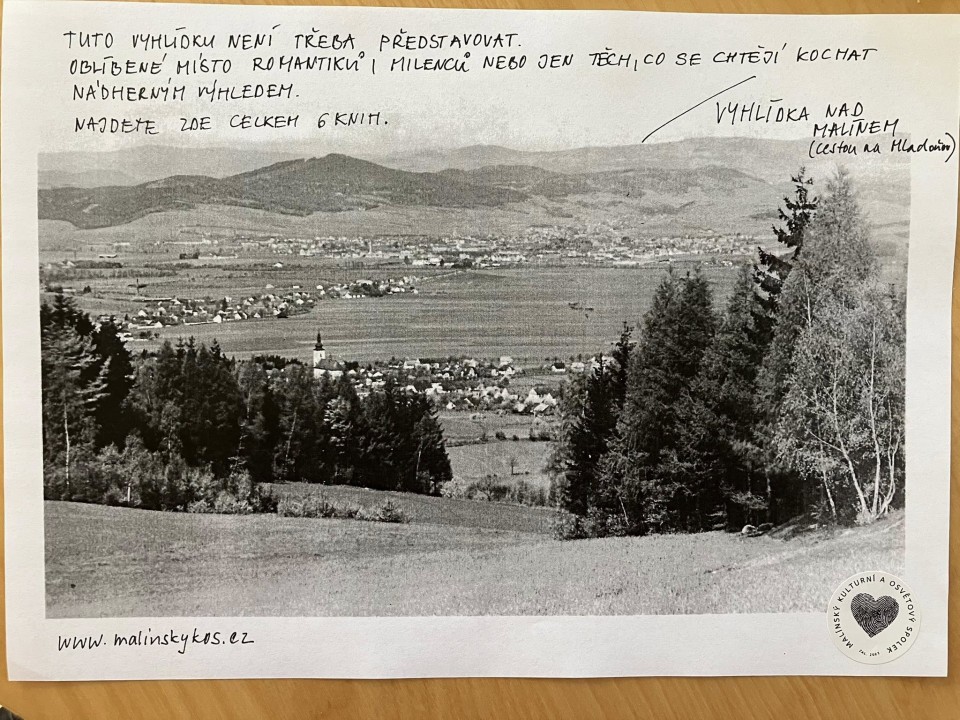 TUTO VYHLÍDKU NENÍ TŘEBA PŘEDSTAVOVAT.
OBLÍBENÉ MÍSTO ROMANTIKŮ, MILENCŮ NEBO JEN TĚCH, CO SE CHTĚJÍ KOCHAT
NÁDHERNÝM VÝHLEDEM.
NAJDETE ZDE CELKEM 6 KNIH.
VYHLÍDKA NAD
MALÍNEM
(cestou na Mladoňov)
www.malinskykos.cz
MALÍNSKÝ KULTURNÍ A OSVĚTOVÝ SPOLEK